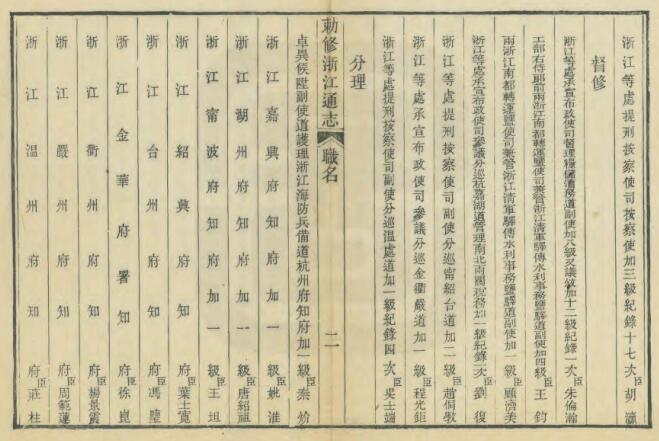 浙江等處提刑按察使司按察使加三級紀錄十七次臣胡瀛
督修
浙江等處承宣布政使司督理糧儲漕務道副使加六級又議敘加十二級紀錄一次臣朱倫瀚
工部右侍郎前兩浙江南都轉運鹽使司兼管浙江清軍驛傳水利事務鹽驛道副使加四級臣王鈞
兩浙江南都轉運鹽使司兼管浙江清軍驛傳水利事務鹽驛道副使加一級臣顧濟美
浙江等處承宣布政使司參議分巡杭嘉湖道管理南北兩關稅務加一級紀錄二次臣劉復
浙江等處提刑按察使司副使分巡甯紹台道加二級臣趙侗斆
浙江等處承宣布政使司參議分巡金衢嚴道加一級臣程光鉅
浙江等處提刑按察使司副使分巡溫處道加一級紀錄四次臣吳士端
分理
敕修浙江通志 職名 二
卓異候陞副使道護理浙江海防兵備道杭州府知府加一級臣秦炌
浙江嘉興府知府加一級臣 淮
浙江湖州府知府加一級臣唐紹祖
浙江甯波府知府加一級臣王坦
浙江紹興府知府臣葉士寬
浙江台州府知府臣馮
浙江金華府署知府臣徐崑
浙江衢州府知府臣楊景震
浙江嚴州府知府臣周範蓮
浙江溫州府知府臣莊柱